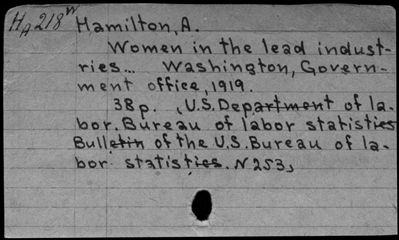 HA 218 W Hamilton, A.
Women in the lead indust-
ries... Washington, Govern-
ment office, 1919.
38p. (U.S. Department of la-
bor. Bureau of labor statistics
Bulletin of the U.S. Bureau of la-
bor statistics. N 253)